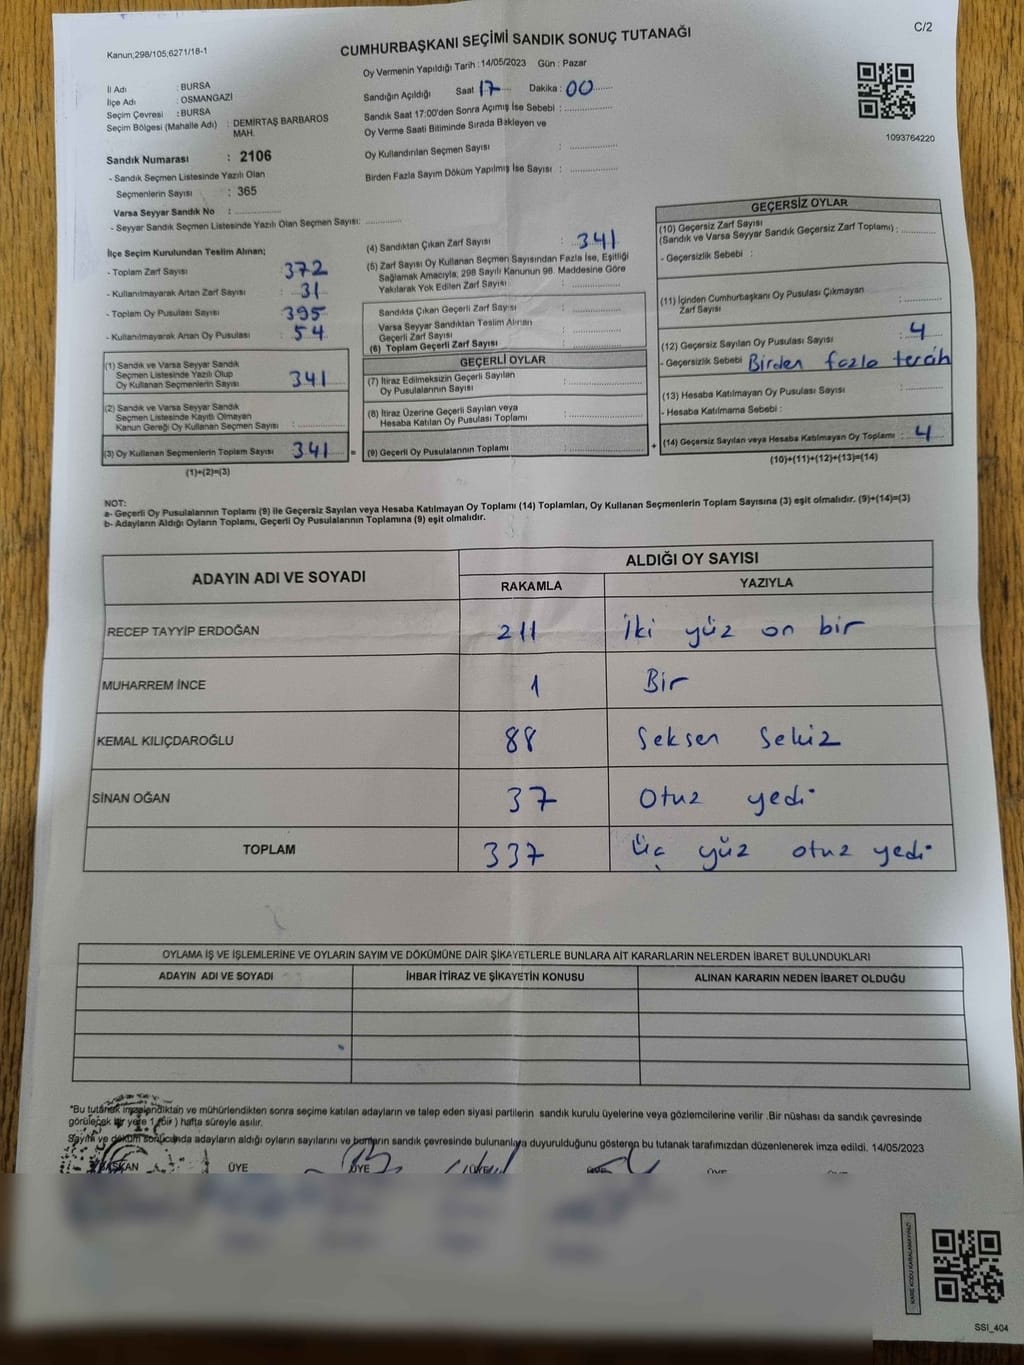 Kanun;298/105;6271/18-1
C/2
CUMHURBAŞKANI SEÇİMİ SANDIK SONUÇ TUTANAĞI
Oy Vermenin Yapıldığı Tarih :14/05/2023 Gün : Pazar
Sandığın Açıldığı Saat 17 Dakika : 00
Sandık Saat 17:00'den Sonra Açımış İse Sebebi :
Oy Verme Saati Bitiminde Sırada Bekleyen ve
Oy Kullandırılan Seçmen Sayısı :
Birden Fazla Sayım Döküm Yapılmış İse Sayısı :
1093764220
İl Adı : BURSA
İlçe Adı : OSMANGAZİ
Seçim Çevresi : BURSA
Seçim Bölgesi (Mahalle Adı) : DEMİRTAŞ BARBAROS MAH.
Sandık Numarası : 2106
- Sandık Seçmen Listesinde Yazılı Olan
Seçmenlerin Sayısı : 365
Varsa Seyyar Sandık No :
- Seyyar Sandık Seçmen Listesinde Yazılı Olan Seçmen Sayısı:
İlçe Seçim Kurulundan Teslim Alınan;
- Toplam Zarf Sayısı : 372
- Kullanılmayarak Artan Zarf Sayısı : 31
- Toplam Oy Pusulası Sayısı : 395
- Kullanılmayarak Artan Oy Pusulası : 54
(1) Sandık ve Varsa Seyyar Sandık
Seçmen Listesinde Yazılı Olup
Oy Kullanan Seçmenlerin Sayısı : 341
(2) Sandık ve Varsa Seyyar Sandık
Seçmen Listesinde Kayıtlı Olmayan
Kanun Gereği Oy Kullanan Seçmen Sayısı :
(3) Oy Kullanan Seçmenlerin Toplam Sayısı : 341
(1)+(2)=(3)
(4) Sandıktan Çıkan Zarf Sayısı : 341
(5) Zarf Sayısı Oy Kullanan Seçmen Sayısından Fazla İse, Eşitliği
Sağlamak Amacıyla; 298 Sayılı Kanunun 98. Maddesine Göre
Yakılarak Yok Edilen Zarf Sayısı :
Sandıkta Çıkan Geçerli Zarf Sayısı :
Varsa Seyyar Sandıktan Teslim Alınan
Geçerli Zarf Sayısı :
(6) Toplam Geçerli Zarf Sayısı :
GEÇERLİ OYLAR
(7) İtiraz Edilmeksizin Geçerli Sayılan
Oy Pusulalarının Sayısı :
(8) İtiraz Üzerine Geçerli Sayılan veya
Hesaba Katılan Oy Pusulası Toplamı :
= (9) Geçerli Oy Pusulalarının Toplamı : +
GEÇERSİZ OYLAR
(10) Geçersiz Zarf Sayısı
(Sandık ve Varsa Seyyar Sandık Geçersiz Zarf Toplamı) :
- Geçersizlik Sebebi :
(11) İçinden Cumhurbaşkanı Oy Pusulası Çıkmayan
Zarf Sayısı :
(12) Geçersiz Sayılan Oy Pusulası Sayısı : 4
- Geçersizlik Sebebi Birden fazla tercih
(13) Hesaba Katılmayan Oy Pusulası Sayısı :
- Hesaba Katılmama Sebebi :
(14) Geçersiz Sayılan veya Hesaba Katılmayan Oy Toplamı : 4
(10)+(11)+(12)+(13)=(14)
NOT:
a- Geçerli Oy Pusulalarının Toplamı (9) ile Geçersiz Sayılan veya Hesaba Katılmayan Oy Toplamı (14) Toplamları, Oy Kullanan Seçmenlerin Toplam Sayısına (3) eşit olmalıdır. (9)+(14)=(3)
b- Adayların Aldığı Oyların Toplamı, Geçerli Oy Pusulalarının Toplamına (9) eşit olmalıdır.
ADAYIN ADI VE SOYADI
ALDIĞI OY SAYISI
RAKAMLA YAZIYLA
RECEP TAYYİP ERDOĞAN 211 İki yüz on bir
MUHARREM İNCE 1 Bir
KEMAL KILIÇDAROĞLU 88 Seksen Sekiz
SİNAN OĞAN 37 Otuz yedi
TOPLAM 337 Üç yüz otuz yedi
OYLAMA İŞ VE İŞLEMLERİNE VE OYLARIN SAYIM VE DÖKÜMÜNE DAİR ŞİKAYETLERLE BUNLARA AİT KARARLARIN NELERDEN İBARET BULUNDUKLARI
ADAYIN ADI VE SOYADI İHBAR İTİRAZ VE ŞİKAYETİN KONUSU ALINAN KARARIN NEDEN İBARET OLDUĞU
*Bu tutanak imzalandıktan ve mühürlendikten sonra seçime katılan adayların ve talep eden siyasi partilerin sandık kurulu üyelerine veya gözlemcilerine verilir .Bir nüshası da sandık çevresinde
görülecek bir yere 1 (bir ) hafta süreyle asılır.
Sayım ve döküm sonucunda adayların aldığı oyların sayılarını ve bunların sandık çevresinde bulunanlara duyurulduğunu gösteren bu tutanak tarafımızdan düzenlenerek imza edildi. 14/05/2023
BAŞKAN ÜYE ÜYE ÜYE
KARE KODU KARALAMAYINIZ!
SSI_404